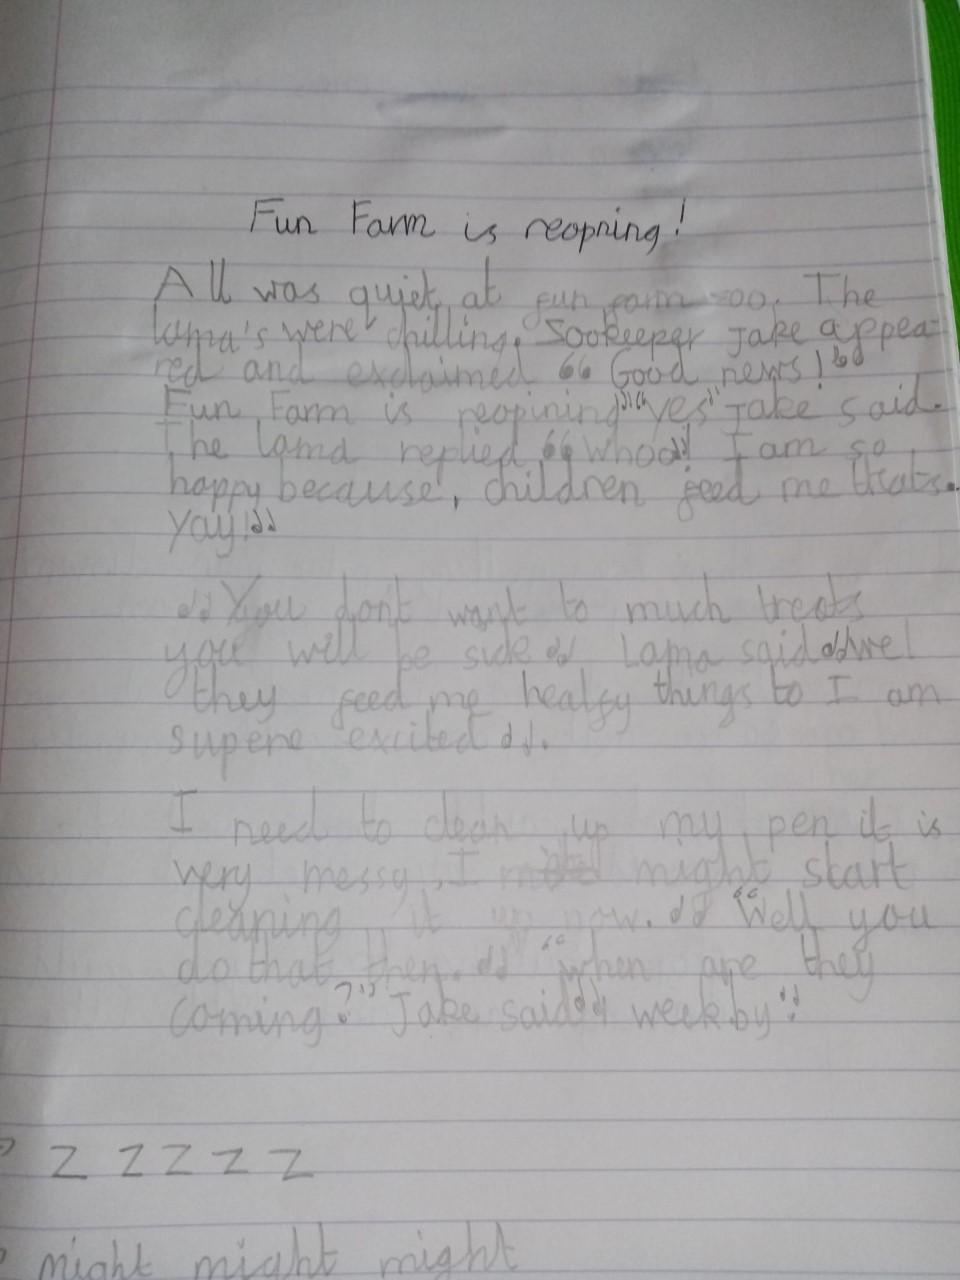 Fun Farm is reopning!
All was quiet at fun farm zoo. The
lama's were chilling. Sookeeper Jake appea-
red and exclaimed “Good news!“
Fun Farm is reopining” “yes” Jake said.
The lama replied “Whoa”! I am so
happy because, children feed me treats.
yay!”
”You don't want to much treats
you will be sick” Lama said ”wel
they feed me healfy things to I am
supere excited”.
I need to clean up my pen it is
very messy. I might start
cleaning it up now.” “Well you
do that then.” “when are they
coming?” Jake said” week by”!
z z z z z
might might might